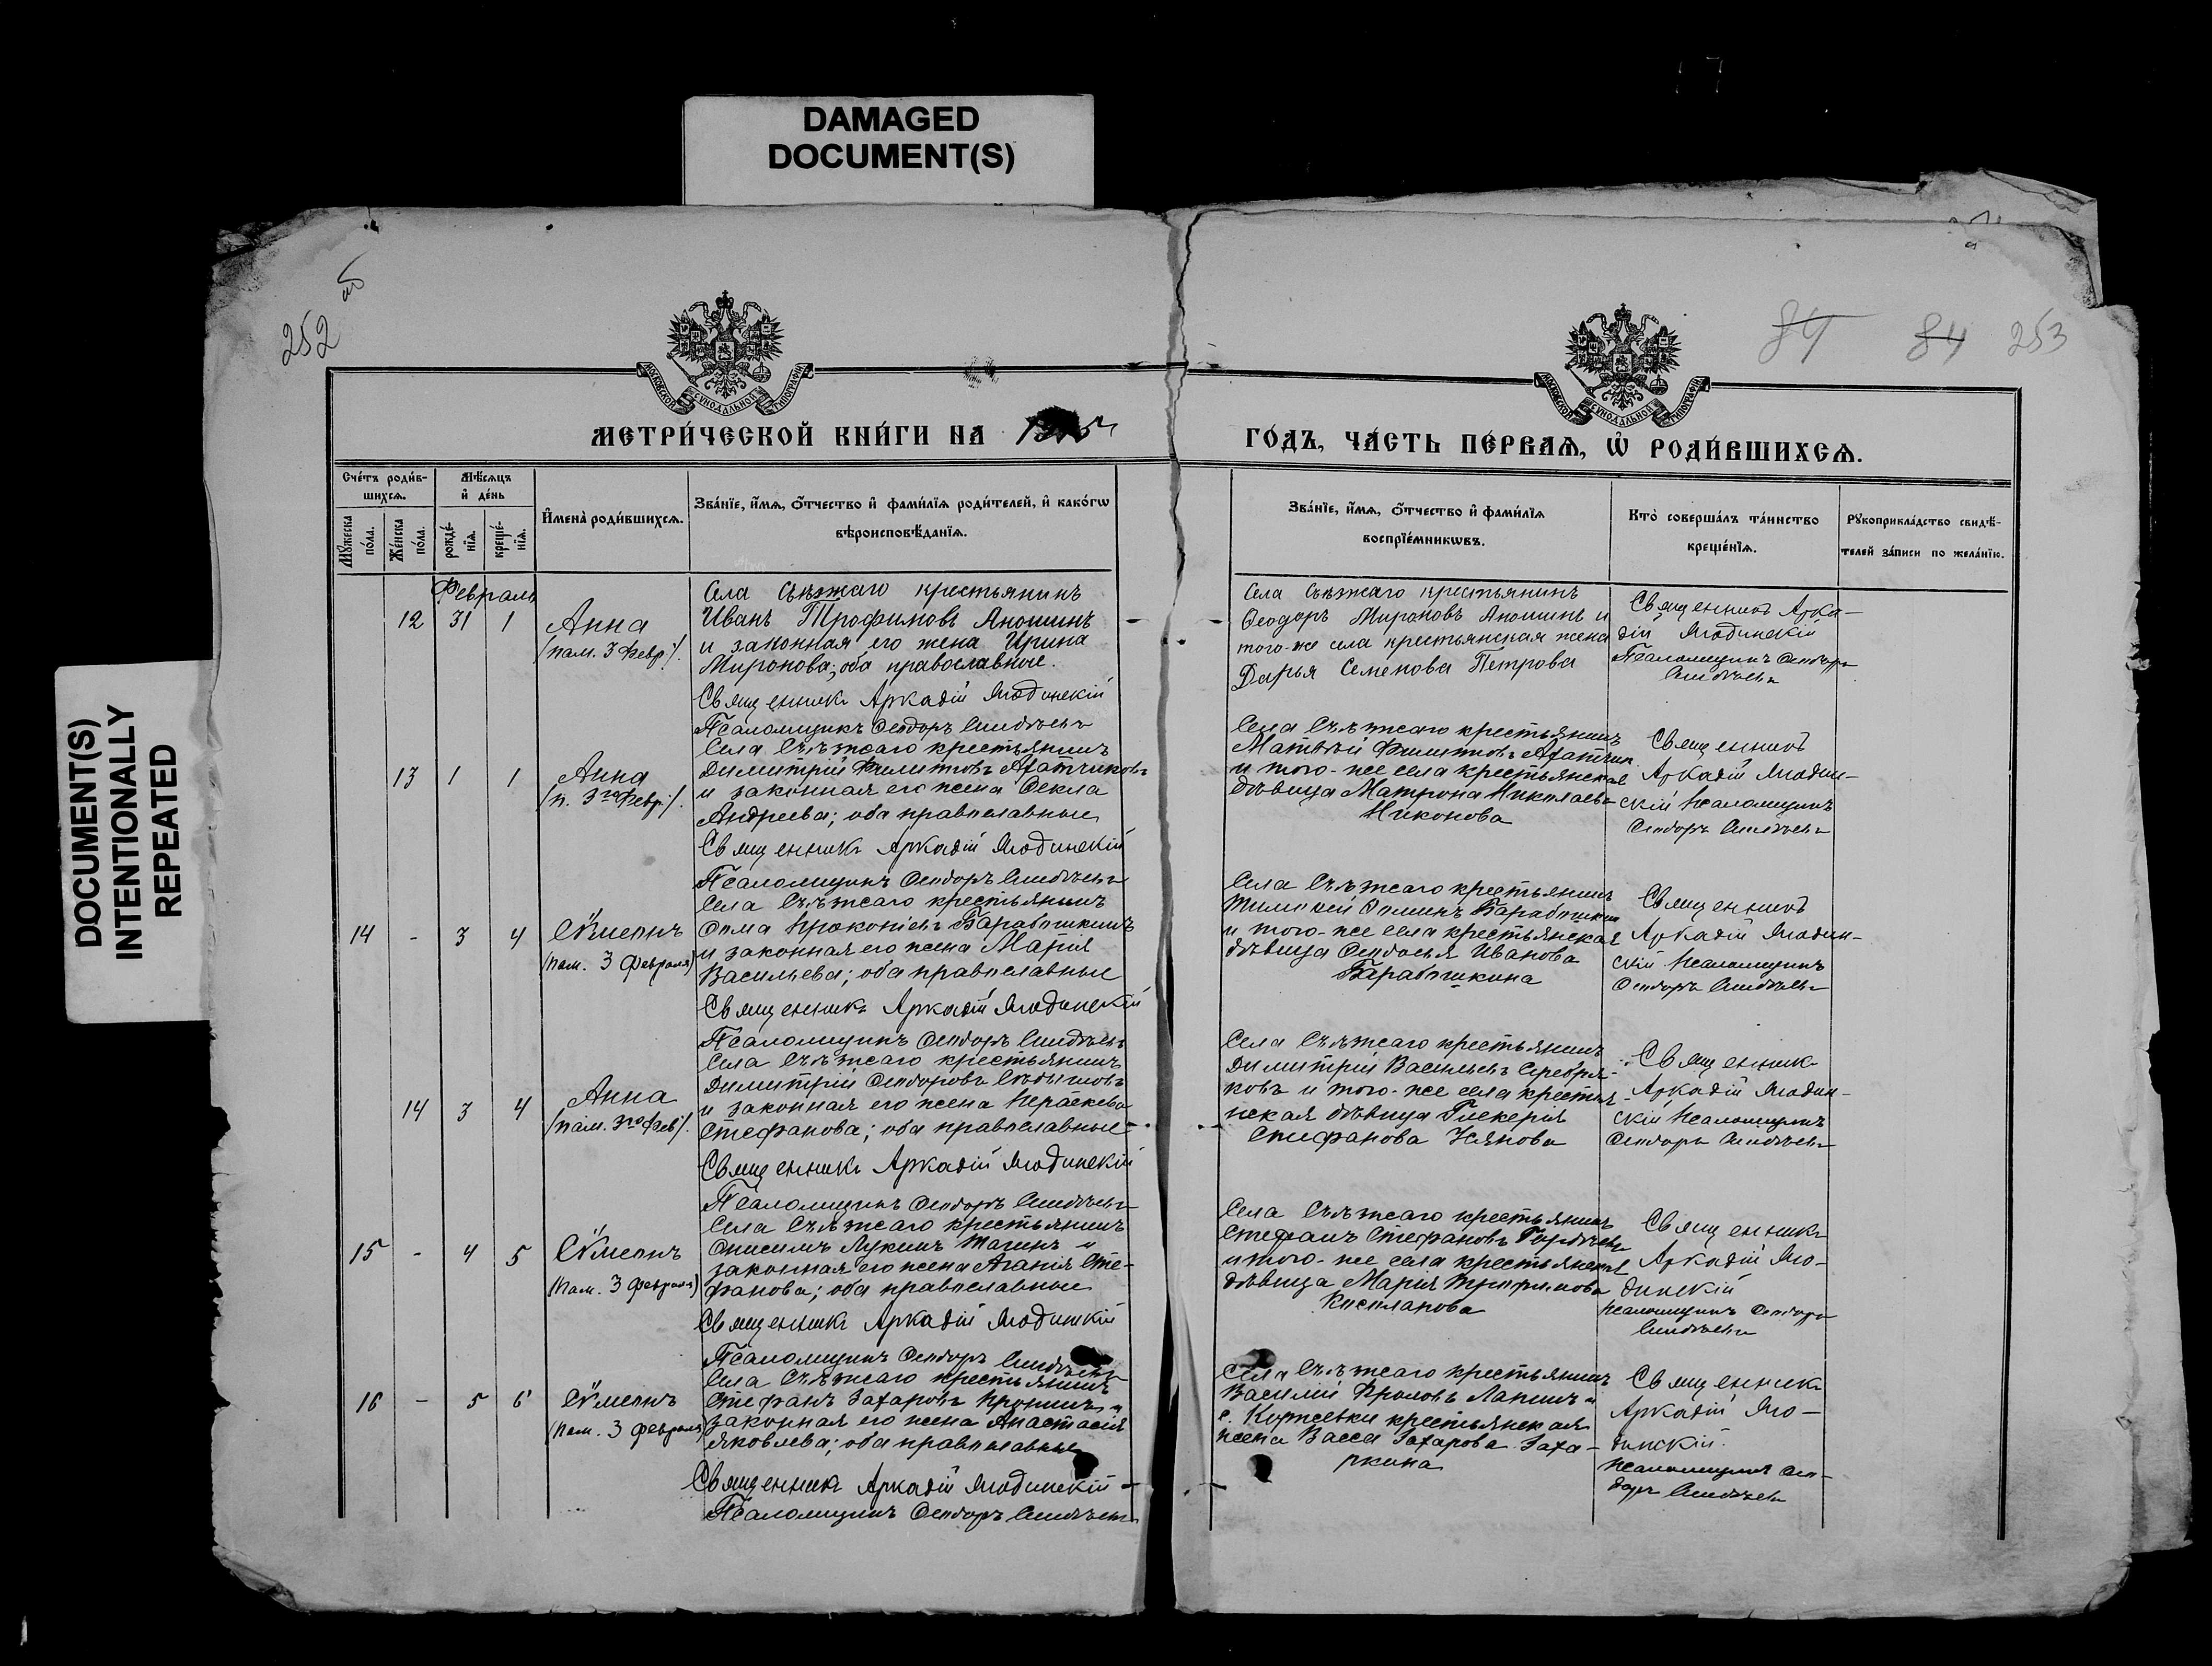 DAMAGED
DOCUMENT(S)
DOCUMENT(S)
INTENTIONALLY
REPEATED
252 об
84 84 253
МОСКОВСКОЙ СѴНОДАЛЬНОЙ ТИПОГРАФІИ
МОСКОВСКОЙ СѴНОДАЛЬНОЙ ТИПОГРАФІИ
МЕТРИ́ЧЕСКОЙ КНИ́ГИ НА 1905
ГО́ДЪ, ЧА́СТЬ ПЕ́РВАѦ, Ѡ҆ РОДИ́ВШИХСѦ.
Сче́тъ роди́вшихсѧ.
Мꙋ́жеска по́ла.
Же́нска по́ла.
Мѣ́сѧцъ и҆ де́нь
рожде́нїѧ.
креще́нїѧ.
И҆мена̀ роди́вшихсѧ.
Зва́нїе, и҆́мѧ, ѻ҆́тчество и҆ фами́лїѧ роди́телей, и҆ како́гѡ
вѣроисповѣ́данїѧ.
Зва́нїе, и҆́мѧ, ѻ҆́тчество и҆ фами́лїѧ
воспрїе́мникѡвъ.
Кто̀ соверша́лъ та́инство
креще́нїѧ.
Рꙋкоприкла́дство свидѣ́-
телей за́писи по жела́нїю.
Февраль
12 31 1 Анна
(пам. 3 Февр.).
Села Съѣзжаго крестьянинъ
Иванъ Трофимовъ Аношинъ
и законная его жена Ирина
Миронова; оба православные.
Священникъ Аркадій
Псаломщикъ Ѳеодоръ
Села Съѣзжаго крестьянинъ
Ѳеодоръ Мироновъ Аношинъ и
того-же села крестьянская жена
Дарья Семенова Петрова
Священникъ Арка-
дій
Псаломщикъ Ѳеодоръ
13 1 1 Анна
(п. 3го Февр.).
Села Съѣзжаго крестьянинъ
Димитрій Филиповъ
и законная его жена Ѳекла
Андреева; оба православные
Священникъ Аркадій
Псаломщикъ Ѳеодоръ
Села Съѣзжаго крестьянинъ
Матвѣй Филиповъ
и того-же села крестьянская
дѣвица Матрона Николаева
Никонова
Священникъ
Аркадій
Псаломщикъ
Ѳеодоръ
14 - 3 4 Сѵмеонъ
(пам. 3 Февраля)
Села Съѣзжаго крестьянинъ
Ѳома Прокопіевъ Барабошкинъ
и законная его жена Марія
Васильева; оба православные
Священникъ Аркадій
Псаломщикъ Ѳеодоръ
Села Съѣзжаго крестьянинъ
Тимоѳей Ѳоминъ Барабошкинъ
и того-же села крестьянская
дѣвица Ѳеодосья Иванова
Барабошкина
Священникъ
Аркадій
Псаломщикъ
Ѳеодоръ
14 3 4 Анна
(пам. 3го Фев.).
Села Съѣзжаго крестьянинъ
Димитрій Ѳеодоровъ
и законная его жена Параскева
Стефанова; оба православные
Священникъ Аркадій
Псаломщикъ Ѳеодоръ
Села Съѣзжаго крестьянинъ
Димитрій Васильевъ Серебря-
ковъ и того-же села крестья-
нская дѣвица Гликерія
Стефанова
Священникъ
Аркадій
Псаломщикъ
Ѳеодоръ
15 - 4 5 Сѵмеонъ
(пам. 3 Февраля)
Села Съѣзжаго крестьянинъ
Онисимъ Лукинъ
законная его жена Агапія Сте-
фанова; оба православные
Священникъ Аркадій
Псаломщикъ Ѳеодоръ
Села Съѣзжаго крестьянинъ
Стефанъ Стефановъ
и того-же села крестьянская
дѣвица Марія Трофимова
Священникъ
Аркадій
Псаломщикъ Ѳеодоръ
16 - 5 6 Сѵмеонъ
(пам. 3 Февраля)
Села Съѣзжаго крестьянинъ
Стефанъ Захаровъ Пронинъ и
законная его жена Анастасія
Яковлева; оба православные
Священникъ Аркадій
Псаломщикъ Ѳеодоръ
Села Съѣзжаго крестьянинъ
Василій Фроловъ Лапшинъ и
с. Коржевки крестьянская
жена Васса Захарова Заха-
ркина
Священникъ
Аркадій
Псаломщикъ Ѳео-
доръ